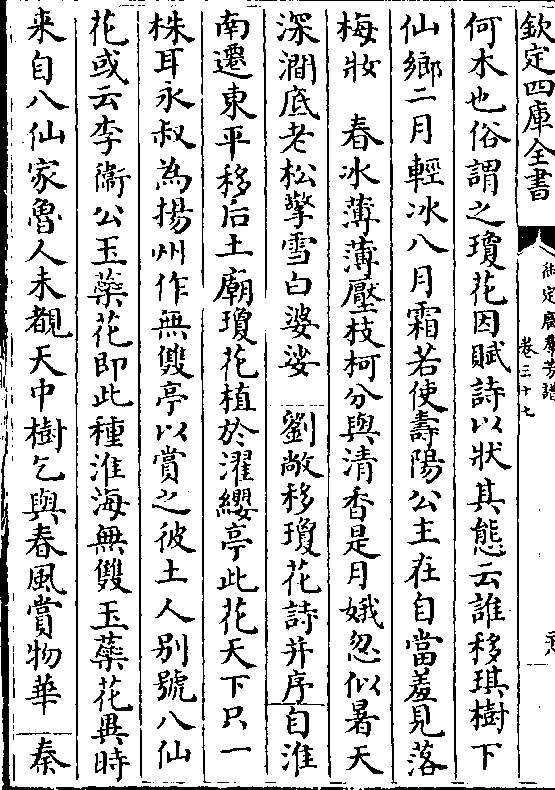 欽定四庫全書
御定廣羣芳譜
卷三十七
何木也俗謂之瓊花因賦詩以狀其態云誰移琪樹下
仙鄉二月輕冰八月霜若使壽陽公主在自當羞見落
梅妝　春冰薄薄壓枝柯分與清香是月娥忽似暑天
深澗底老松擎雪白婆娑　劉敞移瓊花詩并序自淮
南遷東平移后土廟瓊花植於濯纓亭此花天下只一
株耳永叔為揚州作無雙亭以賞之彼土人别號八仙
花或云李衞公玉蘂花即此種淮海無雙玉蘂花異時
来自八仙家魯人未覩天中樹乞與春風賞物華　秦